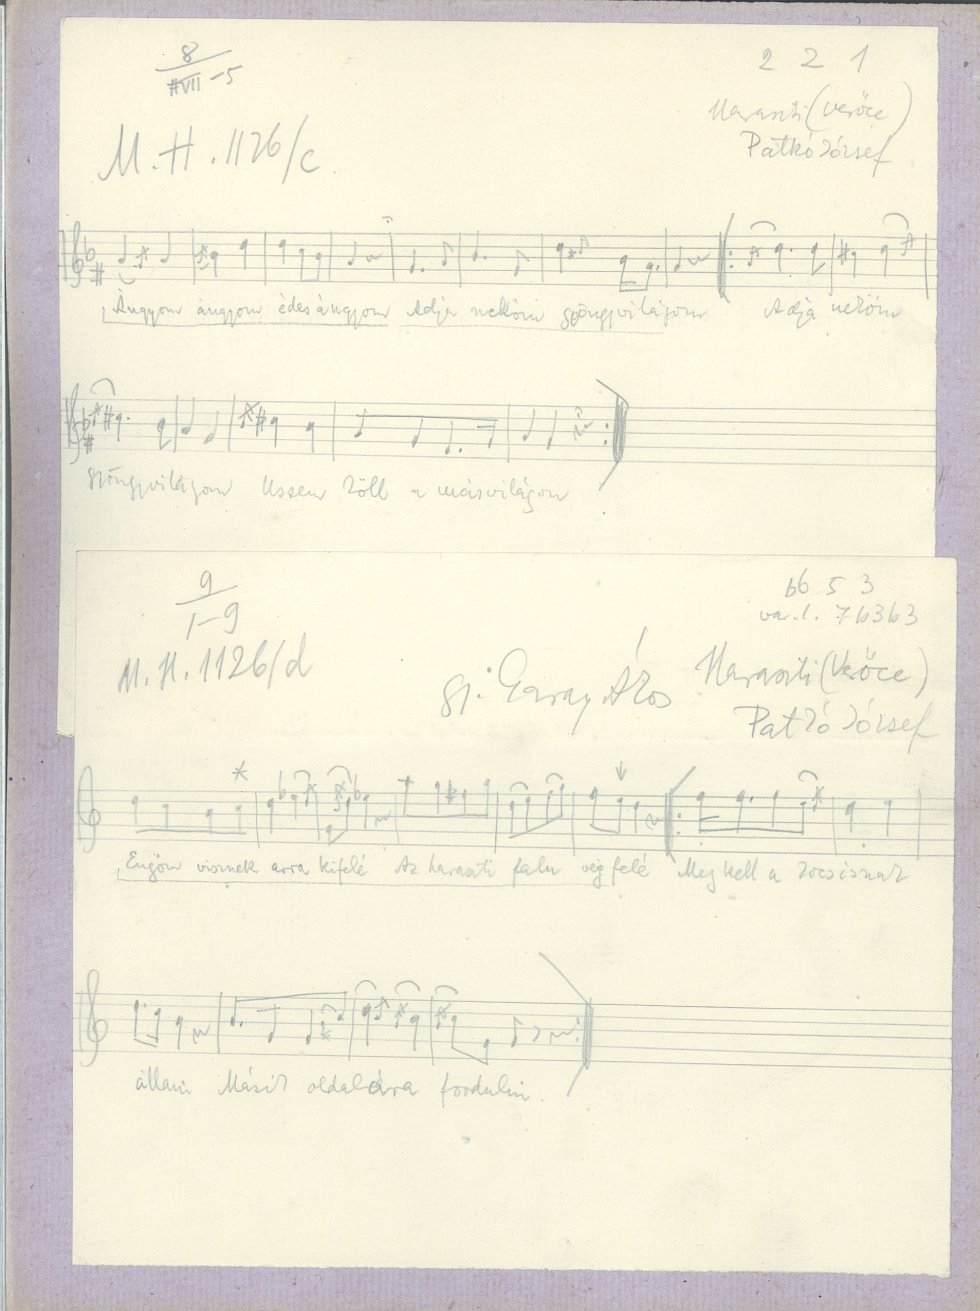 8
#VII-5
2 2 1
Haraszti (Verőce)
Patkó József
M.H. 1126/c
Ángyom ángyom édes ángyom Adjá neköm gyöngyvilágom Adjá neköm
gyöngyvilágom Ussem köll a másvilágon
9
1-9
b6 5 3
var. l. 7 b3 b3
M.H. 1126/d
gy. Garay Ákos
Haraszti (Verőce)
Patkó József
Engöm visznek arra kifelé Az haraszti falu vég felé Meg kell a kocsisnak
állani Másik oldalára fordulni.